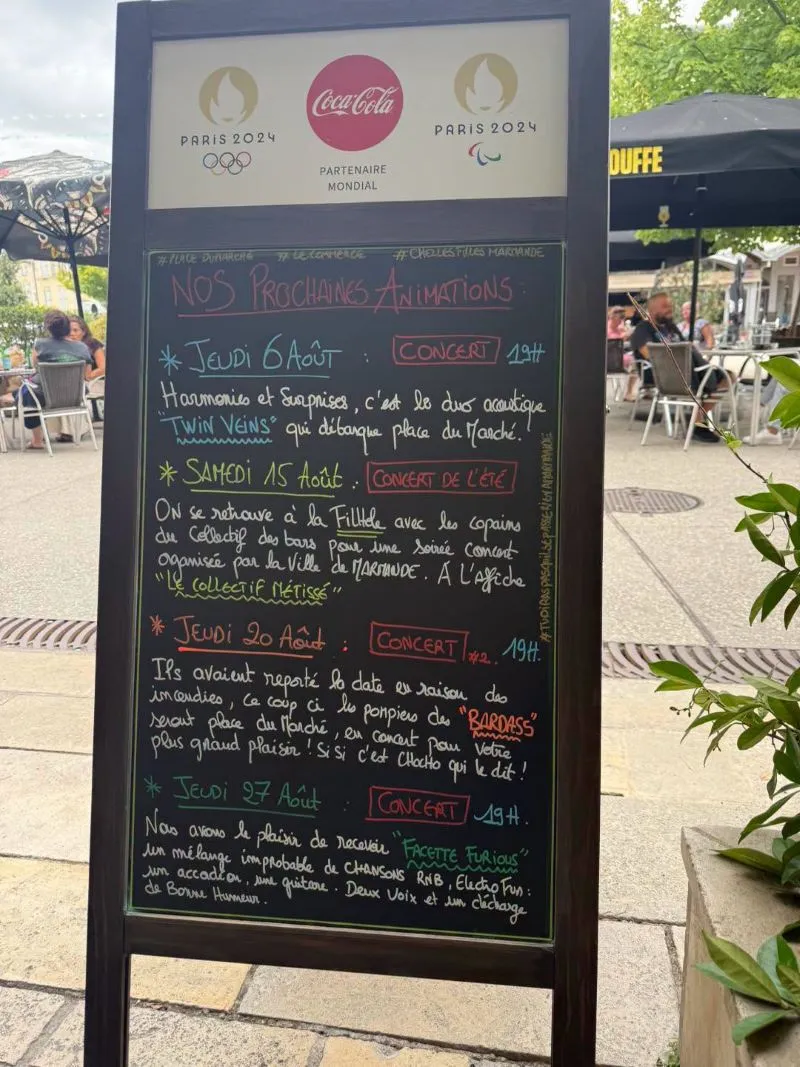 PARIS 2024
Coca-Cola
PARTENAIRE
MONDIAL
PARIS 2024
OUFFE
#PLACE DUMARCHÉ #LE COMMERCE #CHELLESFILLES MARMANDE
NOS PROCHAINES ANIMATIONS
* JEUDI 6 AOÛT : CONCERT 19H
Harmonies et Surprises, c'est le duo acoustique
"TWIN VEINS" qui débarque place du Marché.
* SAMEDI 15 Août . CONCERT DE L'ÉTÉ
ON se retrouve à la Filhole avec les copains
du Collectif des bars pour une soirée concert
organisée par la Ville de MARMANDE. À L'Affiche
"LE COLLECTIF MÉTISSÉ"
* JEUDI 20 Août : CONCERT #2. 19H.
Ils avaient reporté la date en raison des
incendies, ce coup ci les pompiers des "BARDASS"
seront place du Marché, en concert pour votre
plus grand plaisir ! Si Si c'est CHOCHO qui le dit !
* JEUDI 27 Août : CONCERT 19H.
Nous avons le plaisir de recevoir "FACETTE FURIOUS"
un mélange improbable de CHANSONS RNB, Electro Fun :
un accordéon, une guitare. Deux Voix et un décharge
de Bonne Humeur.